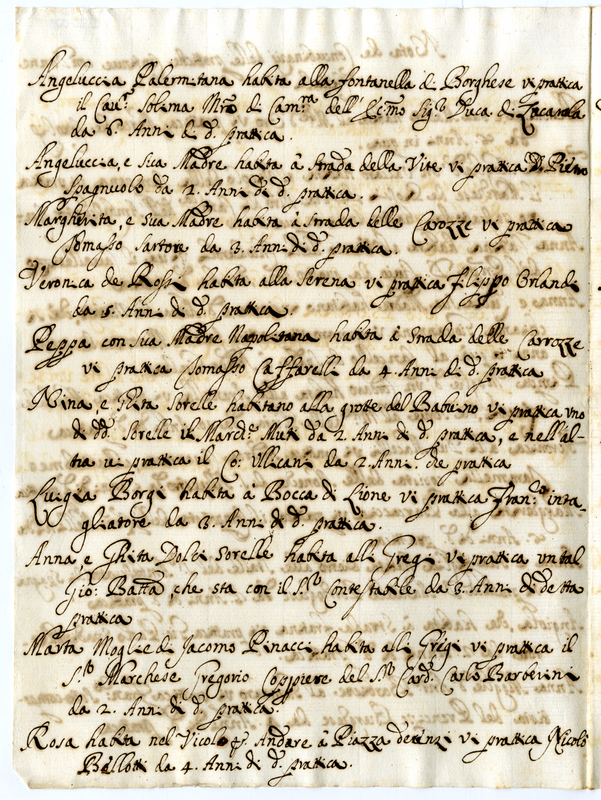 Angeluccia Palermitana habita alla fontanella di Borghese vi prattica
il Cau.r Solima Mro di Cam.ra dell' Ecc.mo Sig.r Duca di Zacarola
da 6. Anni di d.a prattica.
Angeluccia, e sua Madre habita à Strada della Vite vi prattica D. Pietro
Spagnuolo da 2. Anni di d.a prattica.
Margherita, e sua Madre habita à Strada delle Carozze vi prattica
Tomasso Sartore da 3. Anni di d.a prattica.
Veronica de Rossi habita alla Serena vi prattica filippo Orlandi
da 5. Anni di d.a prattica.
Peppa con sua Madre Napolitana habita à Strada delle Carrozze
vi prattica Tomasso Caffarelli da 4. Anni di d.a prattica
Nina, e Ghita Sorelle habitano alla grotte del Babuino vi prattica uno
di dd.e Sorelle il March.e Muti da 2. Anni di d.a prattica, e nell'al-
tra vi prattica il Co: Ullicani da 2. Anni. de prattica
Luigia Borgi habita à Bocca di Lione vi prattica Fran.co inta-
gliatore da 3. Anni di d.a prattica.
Anna, e Ghita Dolci Sorelle habita alli Gregi vi prattica un tal
Gio: Batta, che sta con il S.r Contestabile da 3. Anni di detta
prattica
Marta Moglie di Jacomo Pinacci, habita alli Grigi vi prattica il
S.r Marchese Gregorio Coppiere del S.r Card. Carlo Barberini
da 2. Anni di d.a prattica.
Rosa habita nel Vicolo p. Andare à Piazza de renzi vi prattica Nicolò
Ballotti da 4. Anni di d.a prattica.